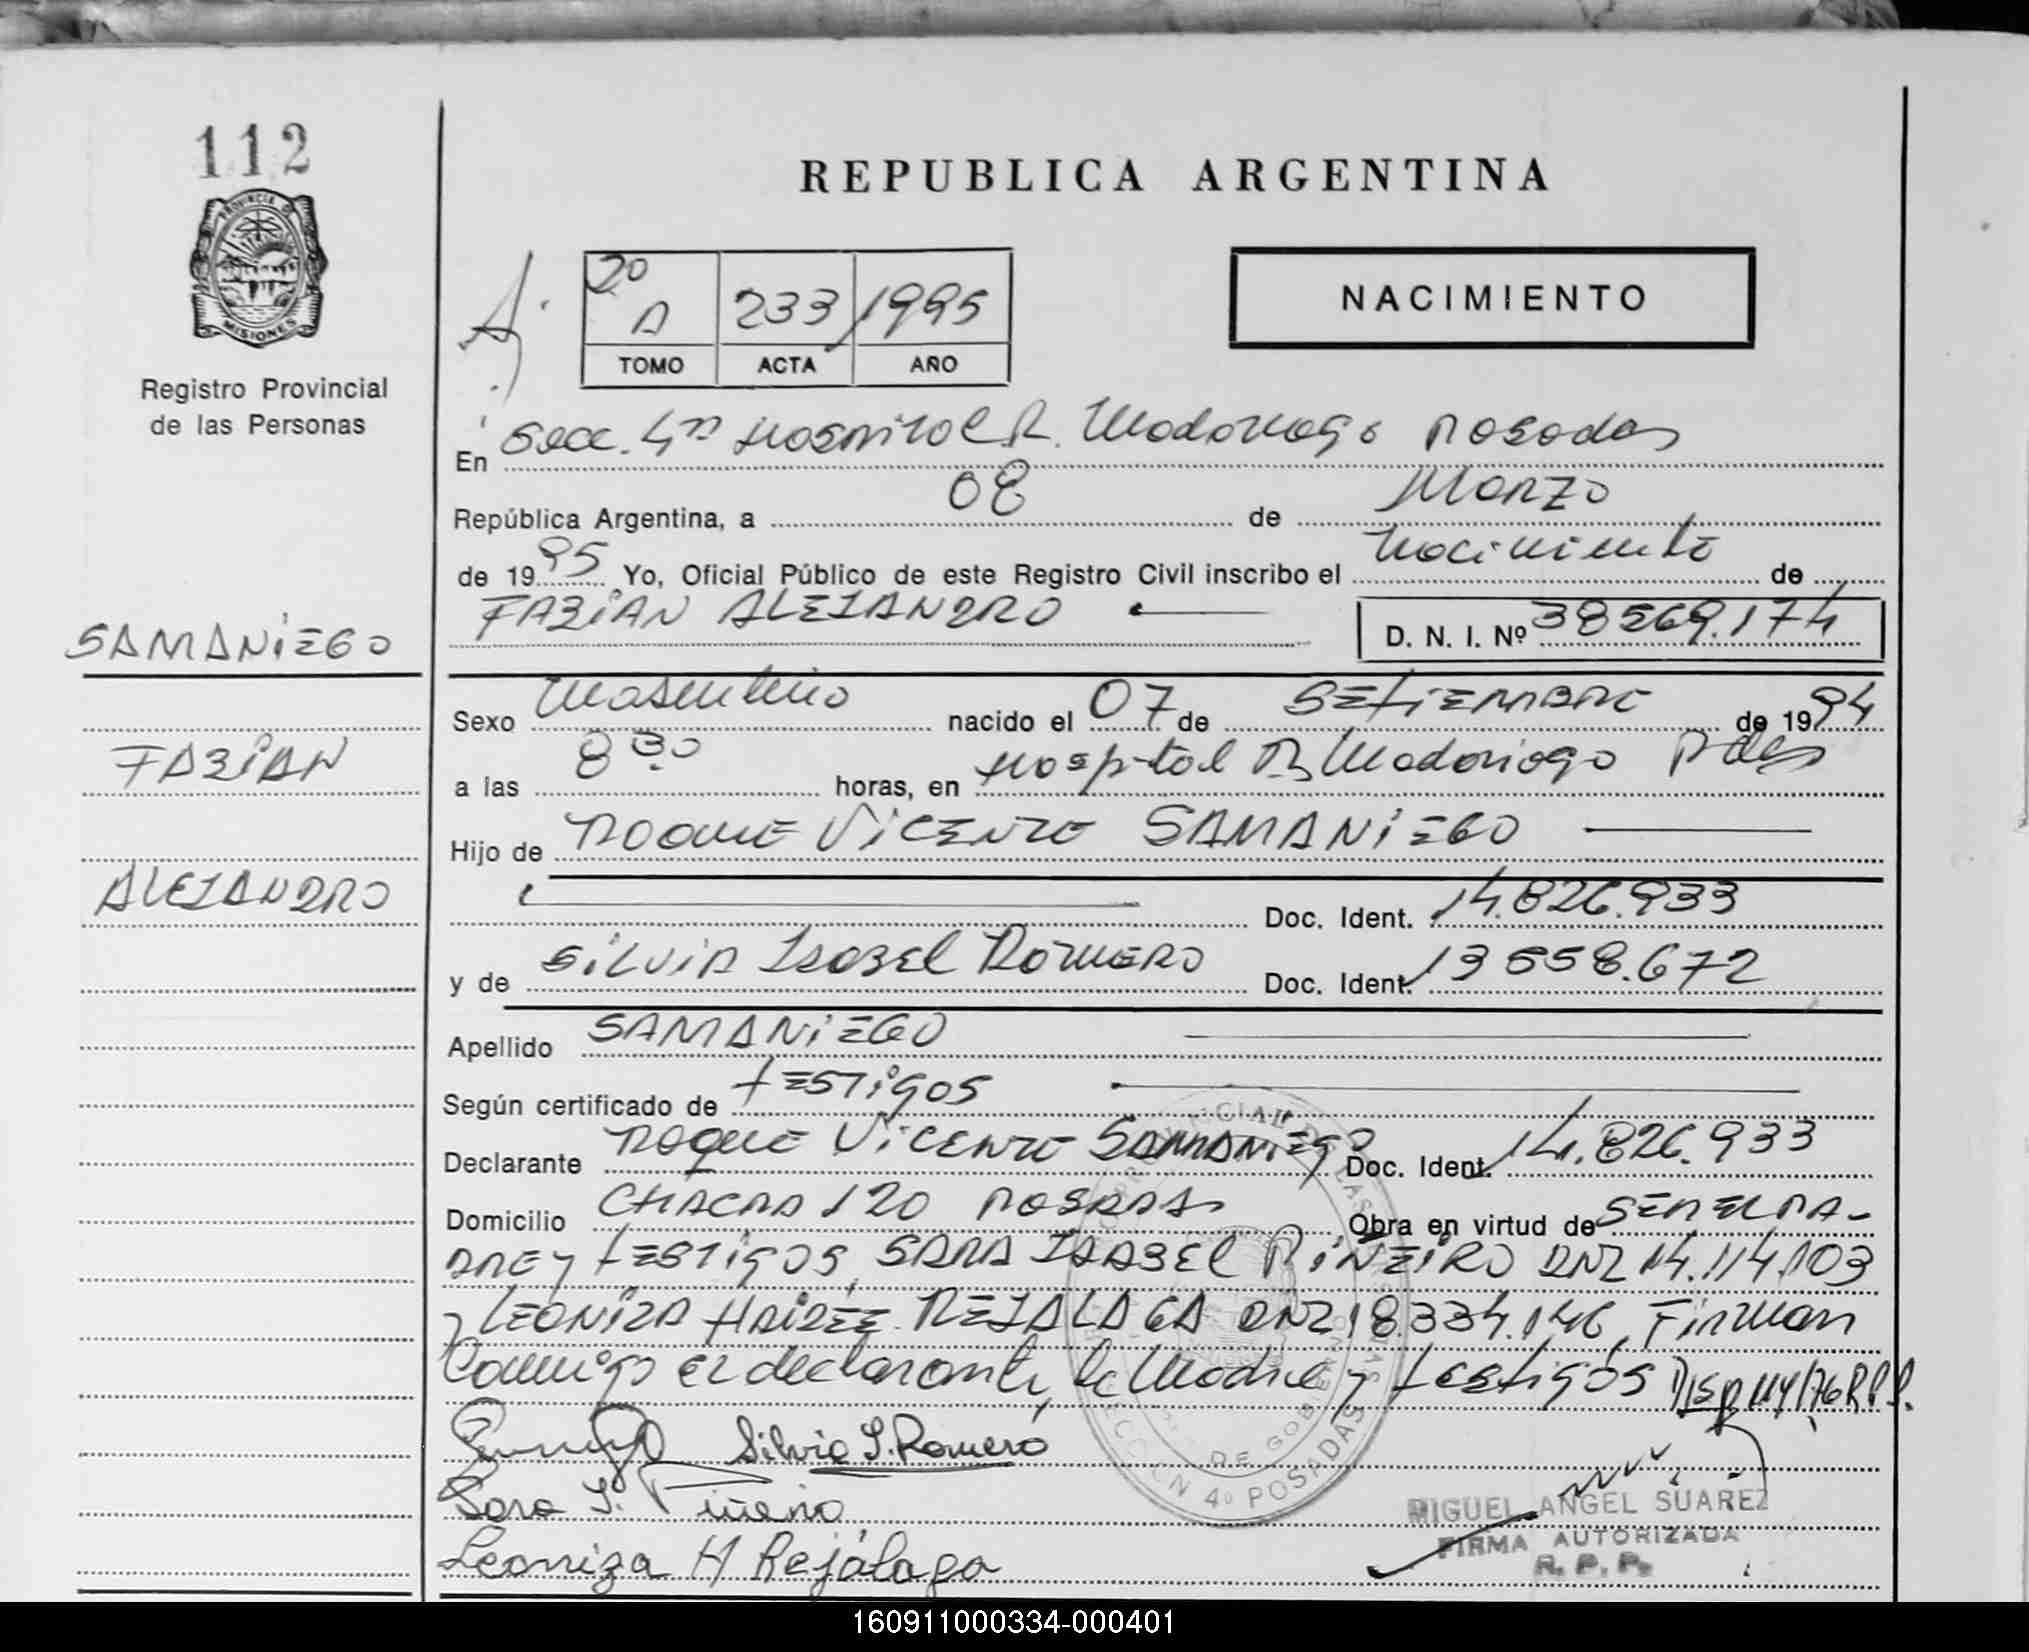 112
PROVINCIA D
MISIONES
Registro Provincial
de las Personas
REPUBLICA ARGENTINA
2º
A 233 1995
TOMO ACTA AÑO
NACIMIENTO
En Secc. 4ta Hospital R. Madariaga Posadas
República Argentina, a 08 de Marzo
de 1995 Yo, Oficial Público de este Registro Civil inscribo el Nacimiento de
FABIAN ALEJANDRO
D. N. I. Nº 38569.174
SAMANIEGO
FABIAN
ALEJANDRO
Sexo Masculino nacido el 07 de SETIEMBRE de 1994
a las 8 30 horas, en Hospital R Madariaga Pdas
Hijo de ROQUE VICENTE SAMANIEGO
Doc. Ident. 14.826.933
y de SILVIA ISABEL ROMERO Doc. Ident. 13558.672
Apellido SAMANIEGO
Según certificado de testigos
Declarante ROQUE VICENTE SAMANIEGO Doc. Ident. 14.826.933
Domicilio CHACRA 120 POSADAS Obra en virtud de SER EL PA-
DRE y testigos, SARA ISABEL PIÑEIRO DNI 14.114.103
y LEONIZA HAIDÉE REJALAGA DNI 18.334.146, Firman
Conmigo el declarante, la Madre y testigos Disp 114/76 R.P.P.
Silvia I. Romero
Sara I. Piñeiro
Leoniza H Rejálaga
SECCION 4º POSADAS
DE GOBIERNO
MIGUEL ANGEL SUAREZ
FIRMA AUTORIZADA
R. P. P.
160911000334-000401